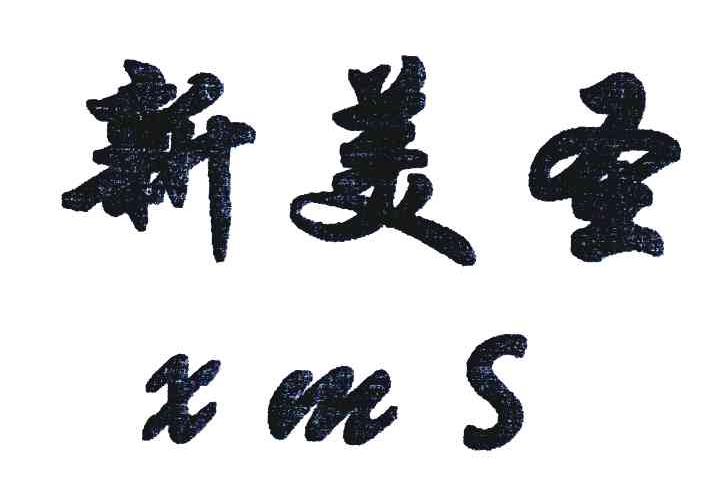 新美圣
xms